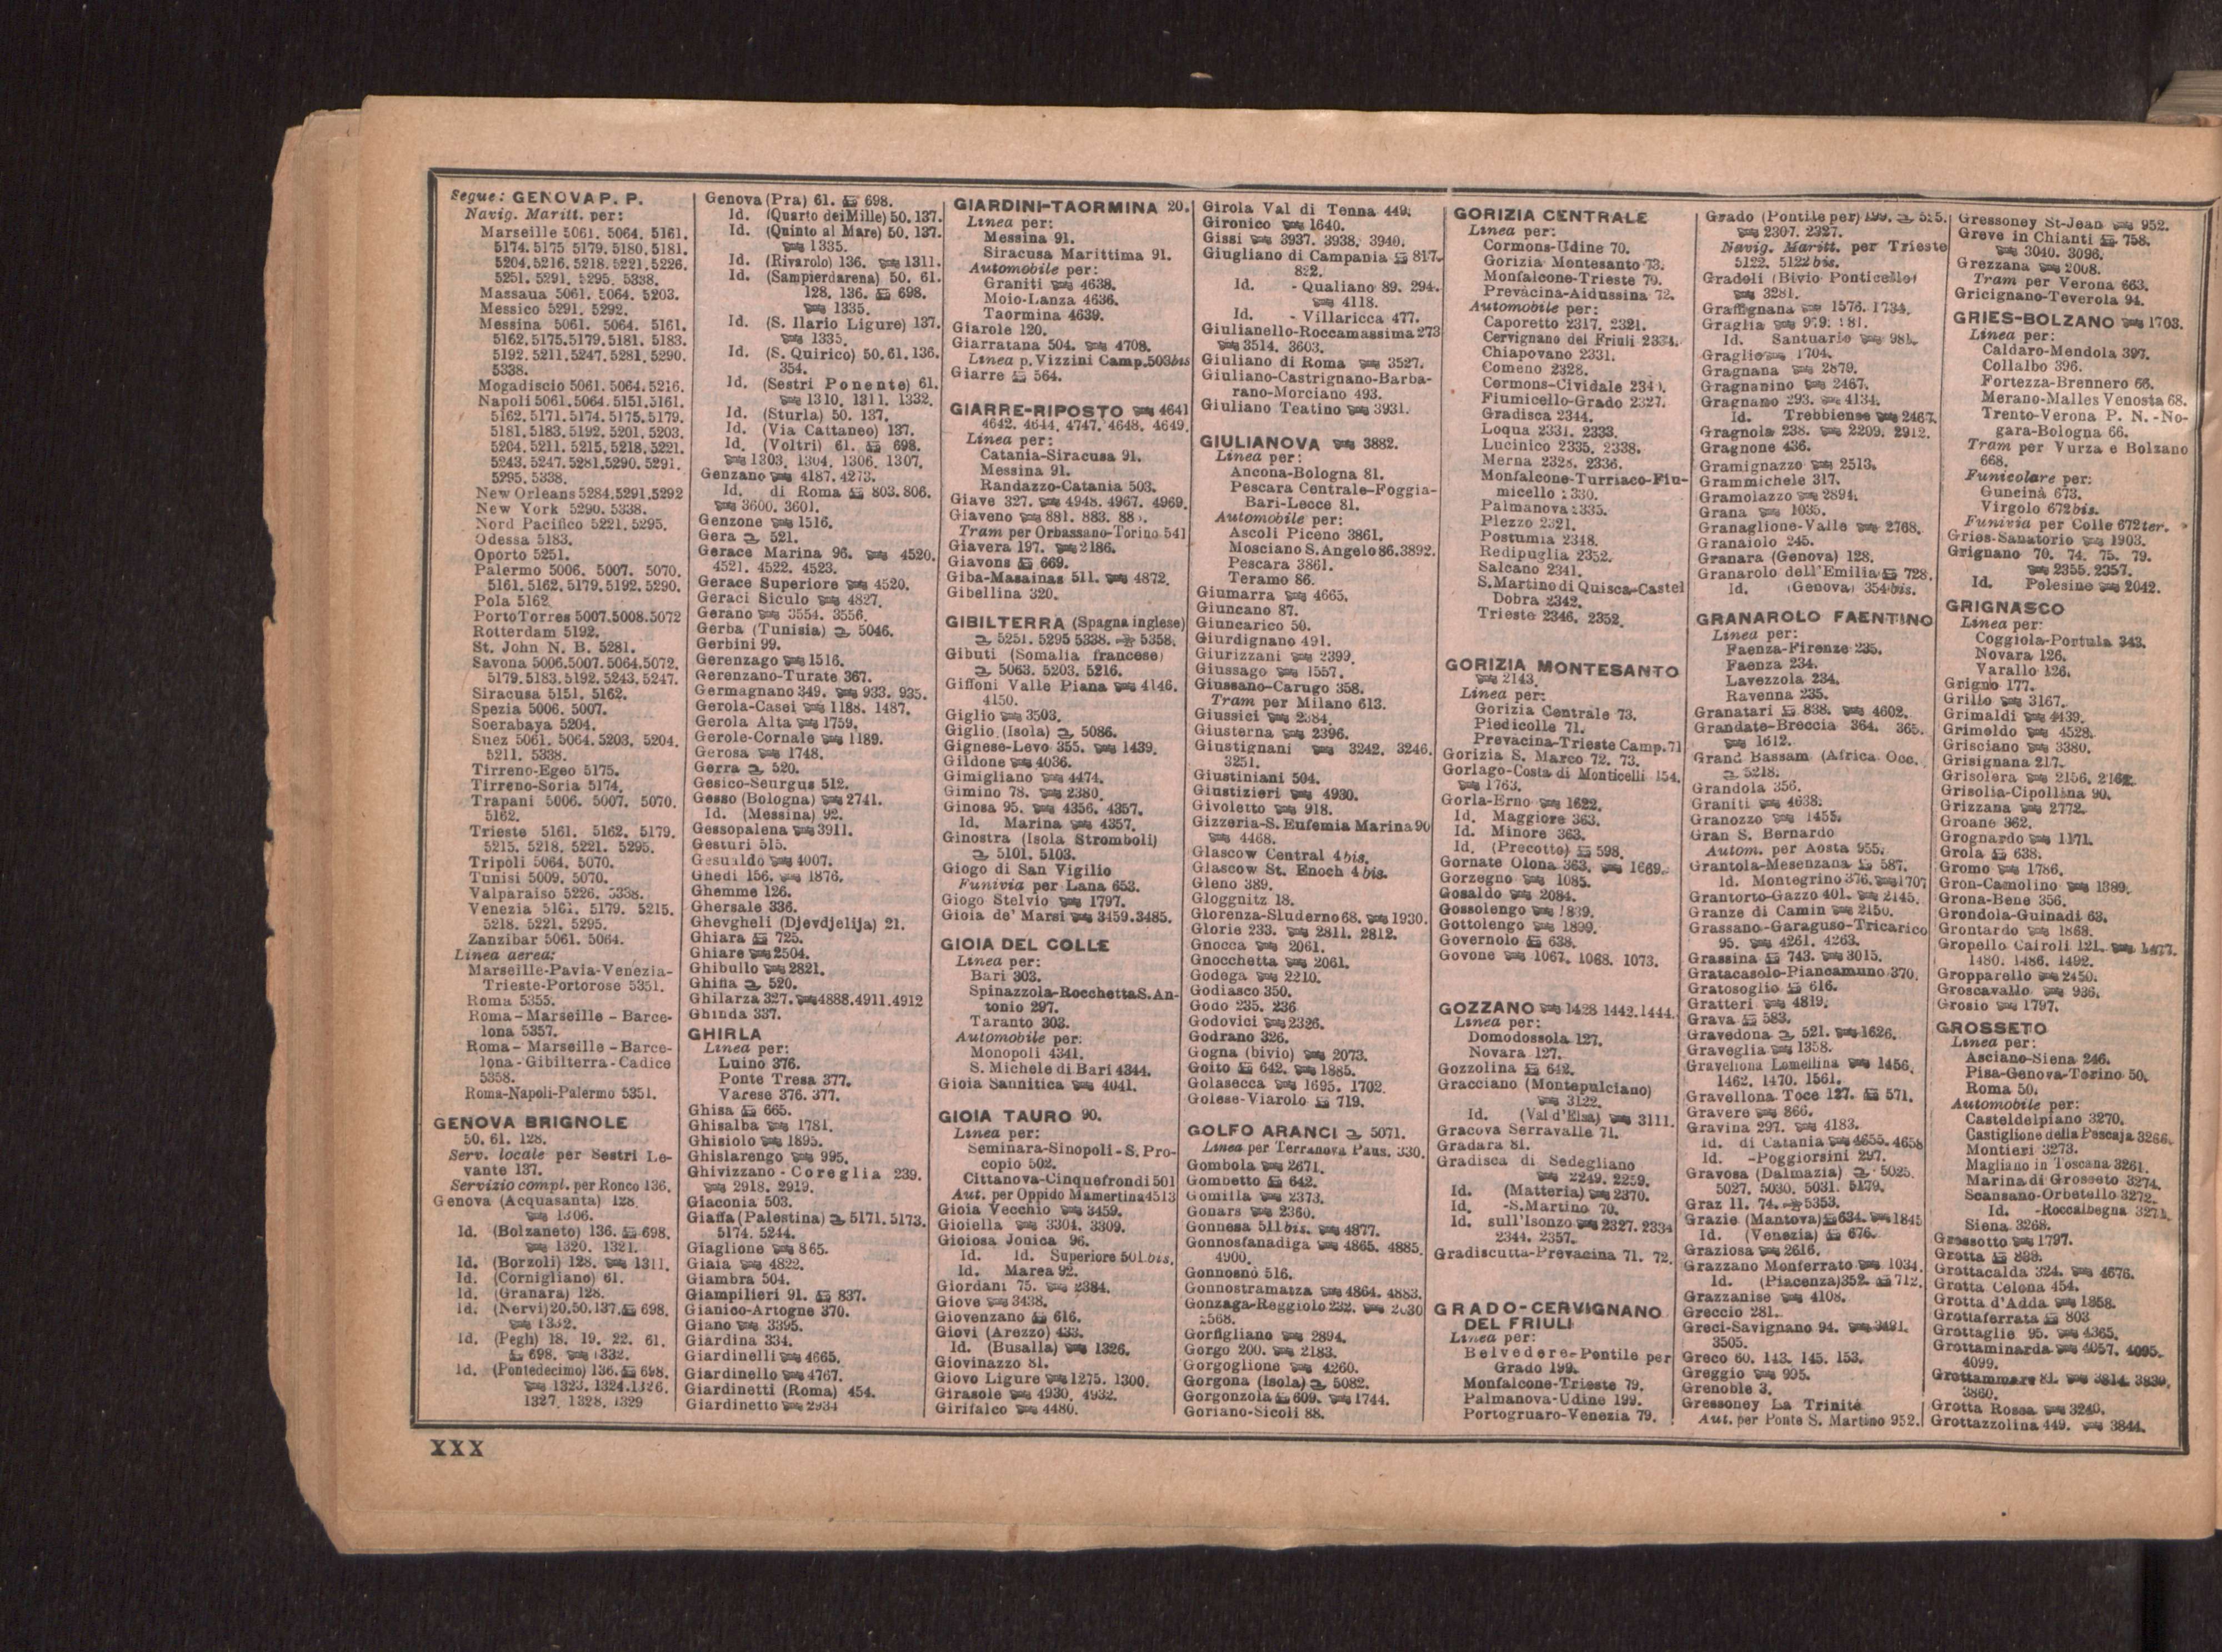 Segue: GENOVA P. P.
Navig. Maritt. per:
Marseille 5061. 5064. 5161.
5174. 5175 5179. 5180. 5181.
5204. 5216. 5218. 5221. 5226.
5251. 5291. 5295. 5338.
Massaua 5061. 5064. 5203.
Messico 5291. 5292.
Messina 5061. 5064. 5161.
5162. 5175. 5179. 5181. 5183.
5192. 5211. 5247. 5281. 5290.
5338.
Mogadiscio 5061. 5064. 5216.
Napoli 5061. 5064. 5151. 5161.
5162. 5171. 5174. 5175. 5179.
5181. 5183. 5192. 5201. 5203.
5204. 5211. 5215. 5218. 5221.
5243. 5247. 5281. 5290. 5291.
5295. 5338.
New Orleans 5284. 5291. 5292
New York 5290. 5338.
Nord Pacifico 5221. 5295.
Odessa 5183.
Oporto 5251.
Palermo 5006. 5007. 5070.
5161. 5162. 5179. 5192. 5290.
Pola 5162.
Porto Torres 5007. 5008. 5072
Rotterdam 5192.
St. John N. B. 5281.
Savona 5006. 5007. 5064. 5072.
5179. 5183. 5192. 5243. 5247.
Siracusa 5151. 5162.
Spezia 5006. 5007.
Soerabaya 5204.
Suez 5061. 5064. 5203. 5204.
5211. 5338.
Tirreno-Egeo 5175.
Tirreno-Soria 5174.
Trapani 5006. 5007. 5070.
5162.
Trieste 5161. 5162. 5179.
5215. 5218. 5221. 5295.
Tripoli 5064. 5070.
Tunisi 5009. 5070.
Valparaiso 5226. 5338.
Venezia 5161. 5179. 5215.
5218. 5221. 5295.
Zanzibar 5061. 5064.
Linea aerea:
Marseille-Pavia-Venezia-
Trieste-Portorose 5351.
Roma 5355.
Roma – Marseille – Barce-
lona 5357.
Roma – Marseille – Barce-
lona - Gibilterra - Cadice
5358.
Roma-Napoli-Palermo 5351.
GENOVA BRIGNOLE
50. 61. 128.
Serv. locale per Sestri Le-
vante 137.
Servizio compl. per Ronco 136.
Genova (Acquasanta) 128.
1306.
Id. (Bolzaneto) 136. 698.
1320. 1321.
Id. (Borzoli) 128. 1311.
Id. (Cornigliano) 61.
Id. (Granara) 128.
Id. (Nervi) 20. 50. 137. 698.
1332.
Id. (Pegli) 18. 19. 22. 61.
698. 1332.
Id. (Pontedecimo) 136. 698.
1323. 1324. 1326.
1327. 1328. 1329
Genova (Pra) 61. 698.
Id. (Quarto dei Mille) 50. 137.
Id. (Quinto al Mare) 50. 137.
1335.
Id. (Rivarolo) 136. 1311.
Id. (Sampierdarena) 50. 61.
128. 136. 698.
1335.
Id. (S. Ilario Ligure) 137.
1335.
Id. (S. Quirico) 50. 61. 136.
354.
Id. (Sestri Ponente) 61.
1310. 1311. 1332.
Id. (Sturla) 50. 137.
Id. (Via Cattaneo) 137.
Id. (Voltri) 61. 698.
1303. 1304. 1306. 1307.
Genzano 4187. 4273.
Id. di Roma 803. 806.
3600. 3601.
Genzone 1516.
Gera 521.
Gerace Marina 96. 4520.
4521. 4522. 4523.
Gerace Superiore 4520.
Geraci Siculo 4827.
Gerano 3554. 3556.
Gerba (Tunisia) 5046.
Gerbini 99.
Gerenzago 1516.
Gerenzano-Turate 367.
Germagnano 349. 933. 935.
Gerola-Casei 1188. 1487.
Gerola Alta 1759.
Gerole-Cornale 1189.
Gerosa 1748.
Gerra 520.
Gesico-Seurgus 512.
Gesso (Bologna) 2741.
Id. (Messina) 92.
Gessopalena 3911.
Gesturi 515.
Gesualdo 4007.
Ghedi 156. 1876.
Ghemme 126.
Ghersale 336.
Ghevgheli (Djevdjelija) 21.
Ghiara 725.
Ghiare 2504.
Ghibullo 2821.
Ghiffa 520.
Ghilarza 327. 4888. 4911. 4912
Ghinda 337.
GHIRLA
Linea per:
Luino 376.
Ponte Tresa 377.
Varese 376. 377.
Ghisa 665.
Ghisalba 1781.
Ghisiolo 1895.
Ghislarengo 995.
Ghivizzano - Coreglia 239.
2918. 2919.
Giaconia 503.
Giaffa (Palestina) 5171. 5173.
5174. 5244.
Giaglione 865.
Giaia 4822.
Giambra 504.
Giampilieri 91. 837.
Gianico-Artogne 370.
Giano 3395.
Giardina 334.
Giardinelli 4665.
Giardinello 4767.
Giardinetti (Roma) 454.
Giardinetto 2934
GIARDINI-TAORMINA 20.
Linea per:
Messina 91.
Siracusa Marittima 91.
Automobile per:
Graniti 4638.
Moio-Lanza 4636.
Taormina 4639.
Giarole 120.
Giarratana 504. 4708.
Linea p. Vizzini Camp. 503bis
Giarre 564.
GIARRE-RIPOSTO 4641
4642. 4644. 4747. 4648. 4649.
Linea per:
Catania-Siracusa 91.
Messina 91.
Randazzo-Catania 503.
Giave 327. 4948. 4967. 4969.
Giaveno 881. 883.
Tram per Orbassano-Torino 541
Giavera 197. 2186.
Giavons 669.
Giba-Masainas 511. 4872.
Gibellina 320.
GIBILTERRA (Spagna inglese)
5251. 5295 5338. 5358.
Gibuti (Somalia francese)
5063. 5203. 5216.
Giffoni Valle Piana 4146.
4150.
Giglio 3503.
Giglio (Isola) 5086.
Gignese-Levo 355. 1439.
Gildone 4036.
Gimigliano 4474.
Gimino 78. 2380.
Ginosa 95. 4356. 4357.
Id. Marina 4357.
Ginostra (Isola Stromboli)
5101. 5103.
Giogo di San Vigilio
Funivia per Lana 653.
Giogo Stelvio 1797.
Gioia de' Marsi 3459. 3485.
GIOIA DEL COLLE
Linea per:
Bari 303.
Spinazzola-Rocchetta S. An-
tonio 297.
Taranto 303.
Automobile per:
Monopoli 4341.
S. Michele di Bari 4344.
Gioia Sannitica 4041.
GIOIA TAURO 90.
Linea per:
Seminara-Sinopoli - S. Pro-
copio 502.
Cittanova-Cinquefrondi 501
Aut. per Oppido Mamertina 4513
Gioia Vecchio 3459.
Gioiella 3304. 3309.
Gioiosa Jonica 96.
Id. Id. Superiore 501bis.
Id. Marea 92.
Giordani 75. 2384.
Giove 3438.
Giovenzano 616.
Giovi (Arezzo) 433.
Id. (Busalla) 1326.
Giovinazzo 81.
Giovo Ligure 1275. 1300.
Girasole 4930. 4932.
Girifalco 4480.
Girola Val di Tenna 449.
Gironico 1640.
Gissi 3937. 3938. 3940.
Giugliano di Campania 817.
822.
Id. - Qualiano 89. 294.
4118.
Id. - Villaricca 477.
Giulianello-Roccamassima 273
3514. 3603.
Giuliano di Roma 3527.
Giuliano-Castrignano-Barba-
rano-Morciano 493.
Giuliano Teatino 3931.
GIULIANOVA 3882.
Linea per:
Ancona-Bologna 81.
Pescara Centrale-Foggia-
Bari-Lecce 81.
Automobile per:
Ascoli Piceno 3861.
Mosciano S. Angelo 86. 3892.
Pescara 3861.
Teramo 86.
Giumarra 4665.
Giuncano 87.
Giuncarico 50.
Giurdignano 491.
Giurizzani 2399.
Giussago 1557.
Giussano-Carugo 358.
Tram per Milano 613.
Giussici 2384.
Giusterna 2396.
Giustignani 3242. 3246.
3251.
Giustiniani 504.
Giustizieri 4930.
Givoletto 918.
Gizzeria-S. Eufemia Marina 90
4468.
Glascow Central 4bis.
Glascow St. Enoch 4bis.
Gleno 389.
Gloggnitz 18.
Glorenza-Sluderno 68. 1930.
Glorie 233. 2811. 2812.
Gnocca 2061.
Gnocchetta 2061.
Godega 2210.
Godiasco 350.
Godo 235. 236
Godovici 2326.
Godrano 326.
Gogna (bivio) 2073.
Goito 642. 1885.
Golasecca 1695. 1702.
Golese-Viarolo 719.
GOLFO ARANCI 5071.
Linea per Terranova Paus. 330.
Gombola 2671.
Gombetto 642.
Gomilla 2373.
Gonars 2360.
Gonnesa 511bis. 4877.
Gonnosfanadiga 4865. 4885.
4900.
Gonnosnò 516.
Gonnostramatza 4864. 4883.
Gonzaga-Reggiolo 232. 2030
2568.
Gorfigliano 2894.
Gorgo 200. 2183.
Gorgoglione 4260.
Gorgona (Isola) 5082.
Gorgonzola 609. 1744.
Goriano-Sicoli 88.
GORIZIA CENTRALE
Linea per:
Cormons-Udine 70.
Gorizia Montesanto 73.
Monfalcone-Trieste 70.
Prevacina-Aidussina 72.
Automobile per:
Caporetto 2317. 2321.
Cervignano del Friuli 2334.
Chiapovano 2331.
Comeno 2328.
Cormons-Cividale
Fiumicello-Grado 2327.
Gradisca 2344.
Loqua 2331. 2333.
Lucinico 2335. 2338.
Merna 2328. 2336.
Monfalcone-Turriaco-Fiu-
micello 2330.
Palmanova 2335.
Piezzo 2321.
Postumia 2348.
Redipuglia 2352.
Salcano 2341.
S. Martino di Quisca-Castel
Dobra 2342.
Trieste 2346. 2352.
GORIZIA MONTESANTO
2143.
Linea per:
Gorizia Centrale 73.
Piedicolle 71.
Prevacina-Trieste Camp. 71
Gorizia S. Marco 72. 73.
Gorlago-Costa di Monticelli 154.
1763.
Gorla-Erno 1622.
Id. Maggiore 363.
Id. Minore 363.
Id. (Precotto) 598.
Gornate Olona 363. 1669.
Gorzegno 1085.
Gosaldo 2084.
Gossolengo 1839.
Gottolengo 1899.
Governolo 638.
Govone 1067. 1068. 1073.
GOZZANO 1428 1442. 1444.
Linea per:
Domodossola 127.
Novara 127.
Gozzolina 642.
Gracciano (Montepulciano)
3122.
Id. (Val d'Elsa) 3111.
Gracova Serravalle 71.
Gradara 81.
Gradisca di Sedegliano
2249. 2259.
Id. (Matteria) 2370.
Id. -S. Martino 70.
Id. sull'Isonzo 2327. 2334
2344. 2357.
Gradiscutta-Prevacina 71. 72.
GRADO-CERVIGNANO
DEL FRIULI
Linea per:
Belvedere-Pontile per
Grado 199.
Monfalcone-Trieste 79.
Palmanova-Udine 199.
Portogruaro-Venezia 79.
Grado (Pontile per) 199. 525.
2307. 2327.
Navig. Maritt. per Trieste
5122. 5122bis.
Gradoli (Bivio Ponticello)
3281.
Graffignana 1576. 1734.
Graglia 979. 981.
Id. Santuario 981.
Graglio 1704.
Gragnana 2879.
Gragnanino 2467.
Gragnano 293. 4134.
Id. Trebbiense 2467.
Gragnola 238. 2209. 2912.
Gragnone 436.
Gramignazzo 2513.
Grammichele 317.
Gramolazzo 2894.
Grana 1035.
Granaglione-Valle 2768.
Granaiolo 245.
Granara (Genova) 128.
Granarolo dell'Emilia 728.
Id. (Genova) 354bis.
GRANAROLO FAENTINO
Linea per:
Faenza-Firenze 235.
Faenza 234.
Lavezzola 234.
Ravenna 235.
Granatari 838. 4602.
Grandate-Breccia 364. 365.
1612.
Grand Bassam (Africa Occ.
5218.
Grandola 356.
Graniti 4638.
Granozzo 1455.
Gran S. Bernardo
Autom. per Aosta 955.
Grantola-Mesenzana 587.
Id. Montegrino 376. 1707
Grantorto-Gazzo 401. 2145.
Granze di Camin 2150.
Grassano-Garaguso-Tricarico
95. 4261. 4263.
Grassina 743. 3015.
Gratacasolo-Piancamuno 370.
Gratosoglio 616.
Gratteri 4819.
Grava 583.
Gravedona 521. 1626.
Graveglia 1358.
Gravellona Lomellina 1456.
1462. 1470. 1561.
Gravellona Toce 127. 571.
Gravere 866.
Gravina 297. 4183.
Id. di Catania 4655. 4658
Id. -Poggiorsini 297.
Gravosa (Dalmazia) 5025.
5027. 5030. 5031. 5179.
Graz 11. 74. 5353.
Grazie (Mantova) 634. 1845
Id. (Venezia) 676.
Graziosa 2616.
Grazzano Monferrato 1034.
Id. (Piacenza) 352. 712.
Grazzanise 4108.
Greccio 281.
Greci-Savignano 94. 3491.
3505.
Greco 60. 143. 145. 153.
Greggio 995.
Grenoble 3.
Gressoney La Trinité
Aut. per Ponte S. Martino 952.
Gressoney St-Jean 952.
Greve in Chianti 758.
3040. 3096.
Grezzana 2008.
Tram per Verona 663.
Gricignano-Teverola 94.
GRIES-BOLZANO 1703.
Linea per:
Caldaro-Mendola 397.
Collalbo 396.
Fortezza-Brennero 66.
Merano-Malles Venosta 68.
Trento-Verona P. N. -No-
gara-Bologna 66.
Tram per Vurza e Bolzano
668.
Funicolare per:
Guncinà 673.
Virgolo 672bis.
Funivia per Colle 672ter.
Gries-Sanatorio 1903.
Grignano 70. 74. 75. 79.
2355. 2357.
Id. Polesine 2042.
GRIGNASCO
Linea per:
Coggiola-Portula 343.
Novara 126.
Varallo 126.
Grigno 177.
Grillo 3167.
Grimaldi 4439.
Grimoldo 4528.
Grisciano 3380.
Grisignana 217.
Grisolera 2156.
Grisolia-Cipollina 90.
Grizzana 2772.
Groane 362.
Grognardo 1171.
Grola 638.
Gromo 1786.
Gron-Camolino 1389.
Grona-Bene 356.
Grondola-Guinadi 63.
Grontardo 1868.
Gropello Cairoli 121. 1477.
1480. 1486. 1492.
Gropparello 2450.
Groscavallo 936.
Grosio 1797.
GROSSETO
Linea per:
Asciano-Siena 246.
Pisa-Genova-Torino 50.
Roma 50.
Automobile per:
Casteldelpiano 3270.
Castiglione della Pescaja 3266.
Montieri 3273.
Magliano in Toscana 3261.
Marina di Grosseto 3274.
Scansano-Orbetello 3272.
Id. -Roccalbegna 3271.
Siena 3268.
Grossotto 1797.
Grotta 838.
Grottacalda 324. 4676.
Grotta Celona 454.
Grotta d'Adda 1858.
Grottaferrata 803
Grottaglie 95. 4365.
Grottaminarda 4057. 4095.
4099.
Grottammare 81. 3814. 3839.
3860.
Grotta Rossa 3240.
Grottazzolina 449. 3844.
XXX